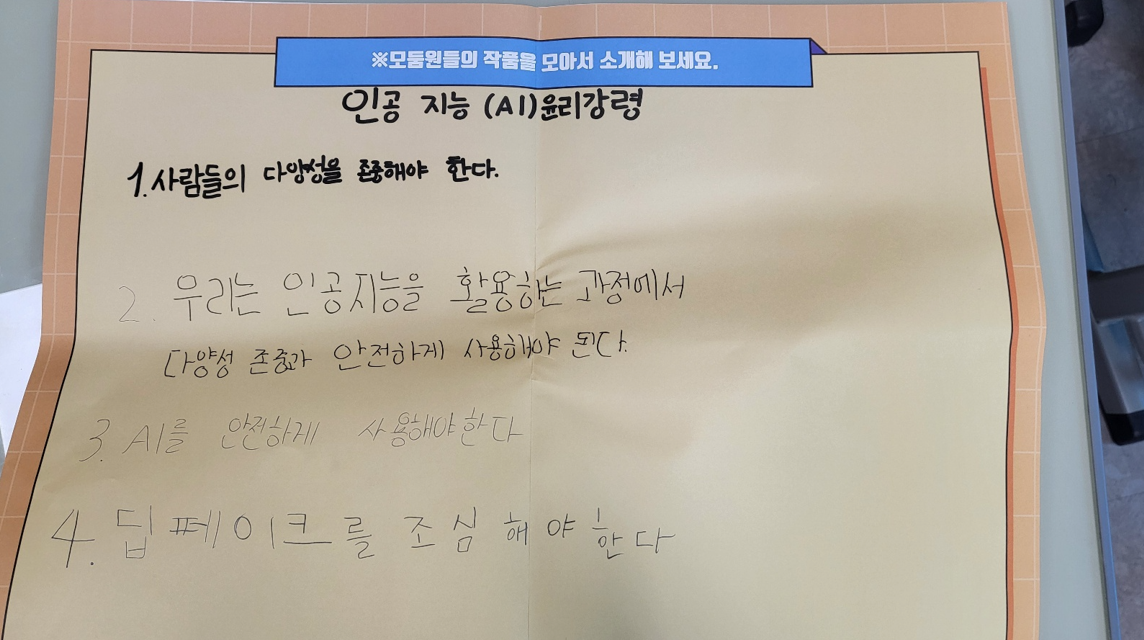 ※모둠원들의 작품을 모아서 소개해 보세요.
인공 지능 (AI)윤리강령
1. 사람들의 다양성을 존중해야 한다.
2. 우리는 인공지능을 활용하는 과정에서
다양성 존중과 안전하게 사용해야 된다.
3. AI를 안전하게 사용해야한다
4. 딥페이크를 조심해야 한다